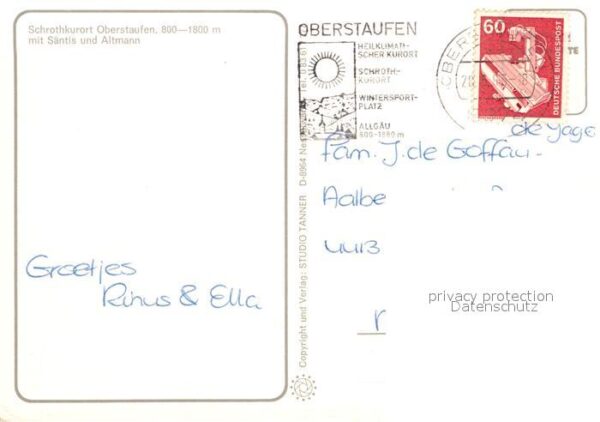 Schrothkurort Oberstaufen, 800—1800 m
mit Säntis und Altmann
Groetjes
Rinus & Ella
Copyright und Verlag: STUDIO TANNER D-8964
OBERSTAUFEN
HEILKLIMATI-
SCHER KURORT
SCHROTH-
KURORT
WINTERSPORT-
PLATZ
ALLGÄU
800-1800 m
60
DEUTSCHE BUNDESPOST
de Jage
Fam. J. de Goffau-
Aalbe
privacy protection
Datenschutz